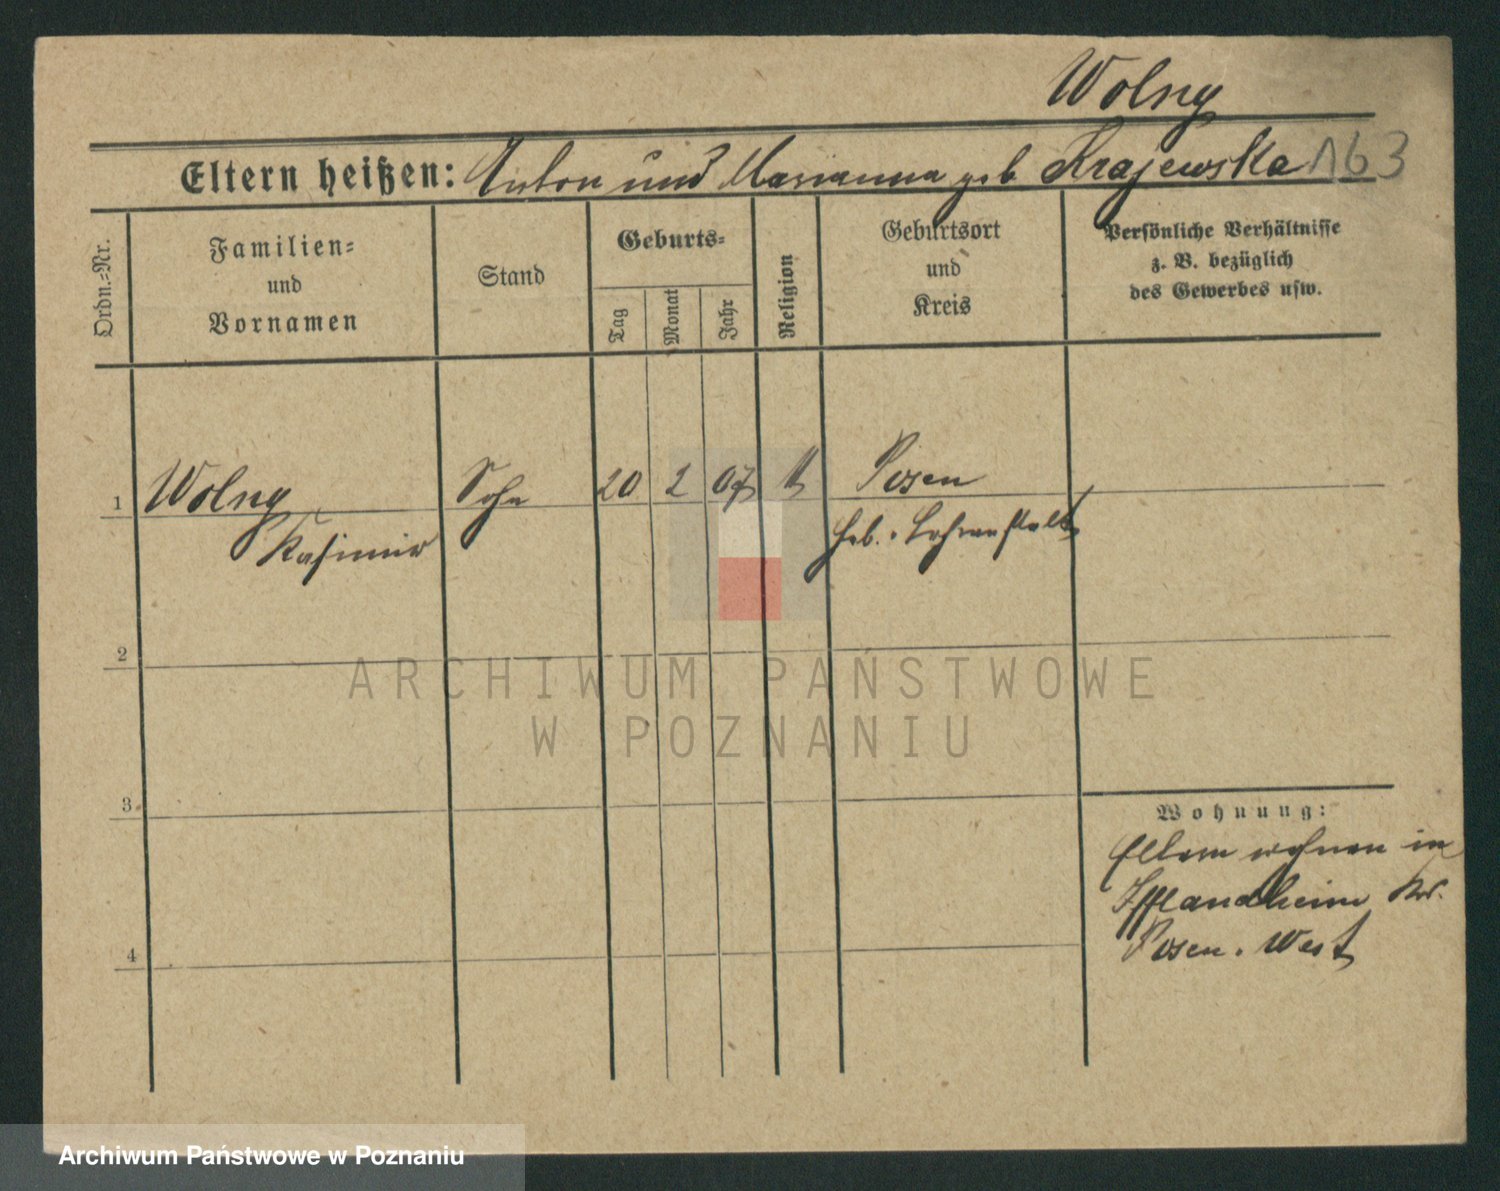 Wolny
Eltern heißen: Anton und Marianna geb Krajewska 163
Ordn.=Nr.
Familien=
und
Vornamen
Stand
Geburts=
Tag
Monat
Jahr
Religion
Geburtsort
und
Kreis
Persönliche Verhältnisse
z. B. bezüglich
des Gewerbes usw.
1 Wolny Sohn 20 2 07 k Posen
Kasimir Heb. Lehranstalt
2
3
4
Wohnung:
Eltern wohnen in
Ifflandheim Kr.
Posen. West
ARCHIWUM PAŃSTWOWE
W POZNANIU
Archiwum Państwowe w Poznaniu